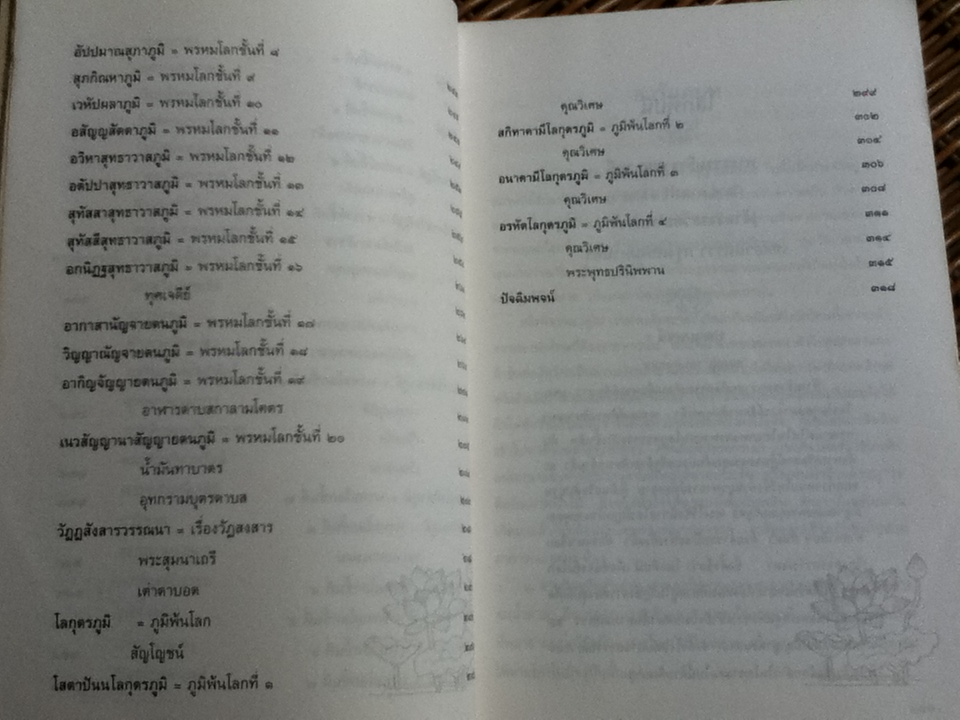 อัปปมาณสุภาภูมิ = พรหมโลกชั้นที่ ๘
สุภกิณหาภูมิ = พรหมโลกชั้นที่ ๙
เวหัปผลาภูมิ = พรหมโลกชั้นที่ ๑๐
อสัญญสัตตาภูมิ = พรหมโลกชั้นที่ ๑๑
อวิหาสุทธาวาสภูมิ = พรหมโลกชั้นที่ ๑๒
อตัปปาสุทธาวาสภูมิ = พรหมโลกชั้นที่ ๑๓
สุทัสสาสุทธาวาสภูมิ = พรหมโลกชั้นที่ ๑๔
สุทัสสีสุทธาวาสภูมิ = พรหมโลกชั้นที่ ๑๕
อกนิฏฐสุทธาวาสภูมิ = พรหมโลกชั้นที่ ๑๖
ทุศเจดีย์
อากาสานัญจายตนภูมิ = พรหมโลกชั้นที่ ๑๗
วิญญาณัญจายตนภูมิ = พรหมโลกชั้นที่ ๑๘
อากิญจัญญายตนภูมิ = พรหมโลกชั้นที่ ๑๙
อาฬารดาบสกาลามโคตร
เนวสัญญานาสัญญายตนภูมิ = พรหมโลกชั้นที่ ๒๐
น้ำมันทาบาตร
อุทกรามบุตรดาบส
วัฏฏสังสารวรรณนา = เรื่องวัฏสงสาร
พระสุมนาเถรี
เต่าตาบอด
โลกุตรภูมิ = ภูมิพ้นโลก
สัญโญชน์
โสดาปันนโลกุตรภูมิ = ภูมิพ้นโลกที่ ๑
คุณวิเศษ ๒๙๙
สกิทาคามีโลกุตรภูมิ = ภูมิพ้นโลกที่ ๒ ๓๐๒
คุณวิเศษ ๓๐๔
อนาคามีโลกุตรภูมิ = ภูมิพ้นโลกที่ ๓ ๓๐๖
คุณวิเศษ ๓๐๘
อรหัตโลกุตรภูมิ = ภูมิพ้นโลกที่ ๔ ๓๑๑
คุณวิเศษ ๓๑๔
พระพุทธปรินิพพาน ๓๑๕
ปัจฉิมพจน์ ๓๑๘